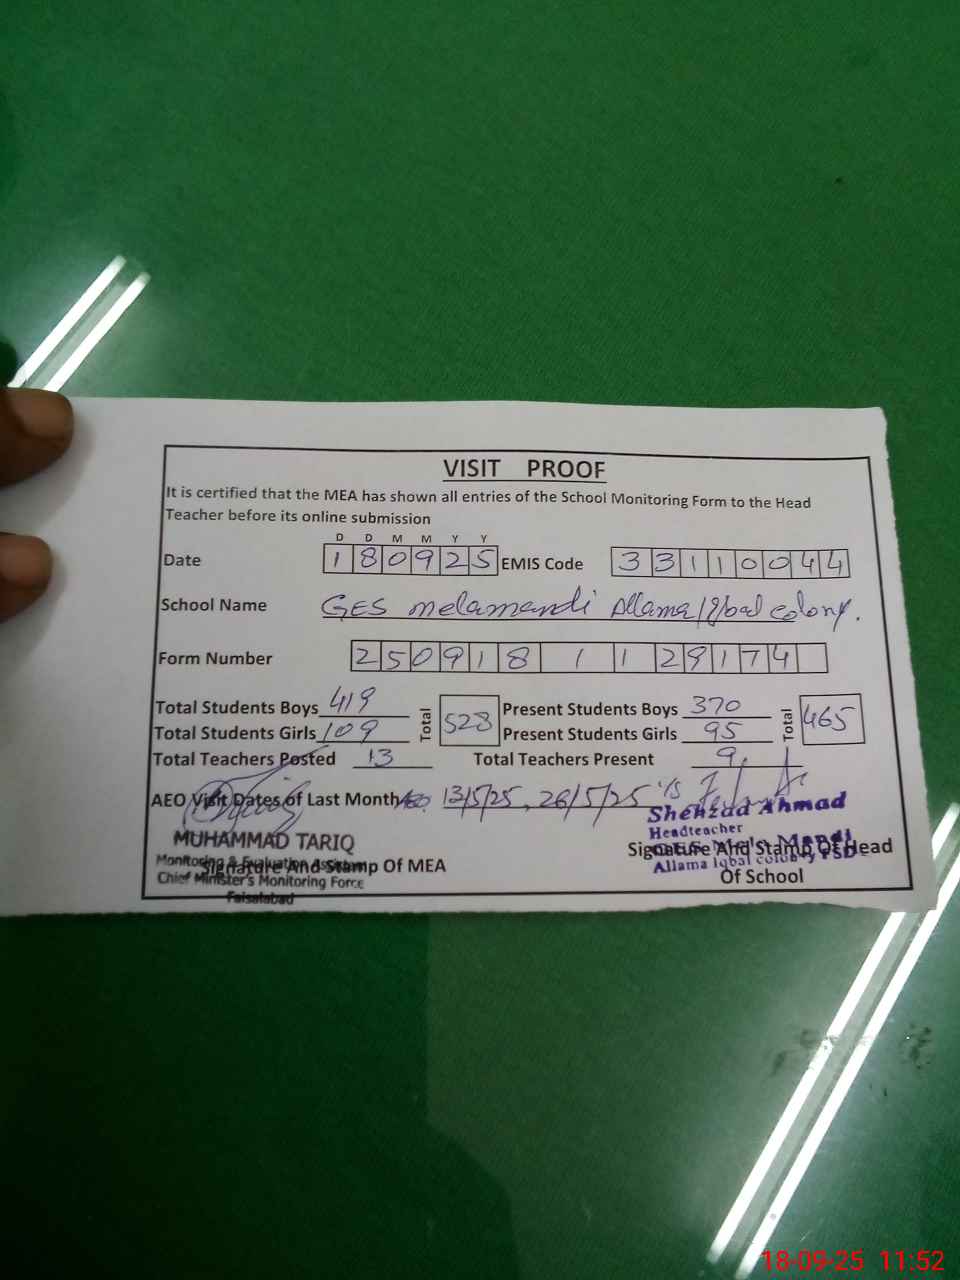 VISIT PROOF
It is certified that the MEA has shown all entries of the School Monitoring Form to the Head
Teacher before its online submission
D D M M Y Y
Date 180925 EMIS Code 33110044
School Name GES melamandi Allama Iqbal colony.
Form Number 250918 1 129174
Total Students Boys 419 Total 528 Present Students Boys 370 Total 465
Total Students Girls 109 Present Students Girls 95
Total Teachers Posted 13 Total Teachers Present 9
AEO Visit Dates of Last Month 13/5/25, 26/5/25
MUHAMMAD TARIQ
Monitoring & Evaluation Assistant
Chief Minister's Monitoring Force
Faisalabad
Signature And Stamp Of MEA
Shehzad Ahmad
Headteacher
Mandi
Allama Iqbal colony FSD
Signature And Stamp Of Head
Of School
18-09-25 11:52